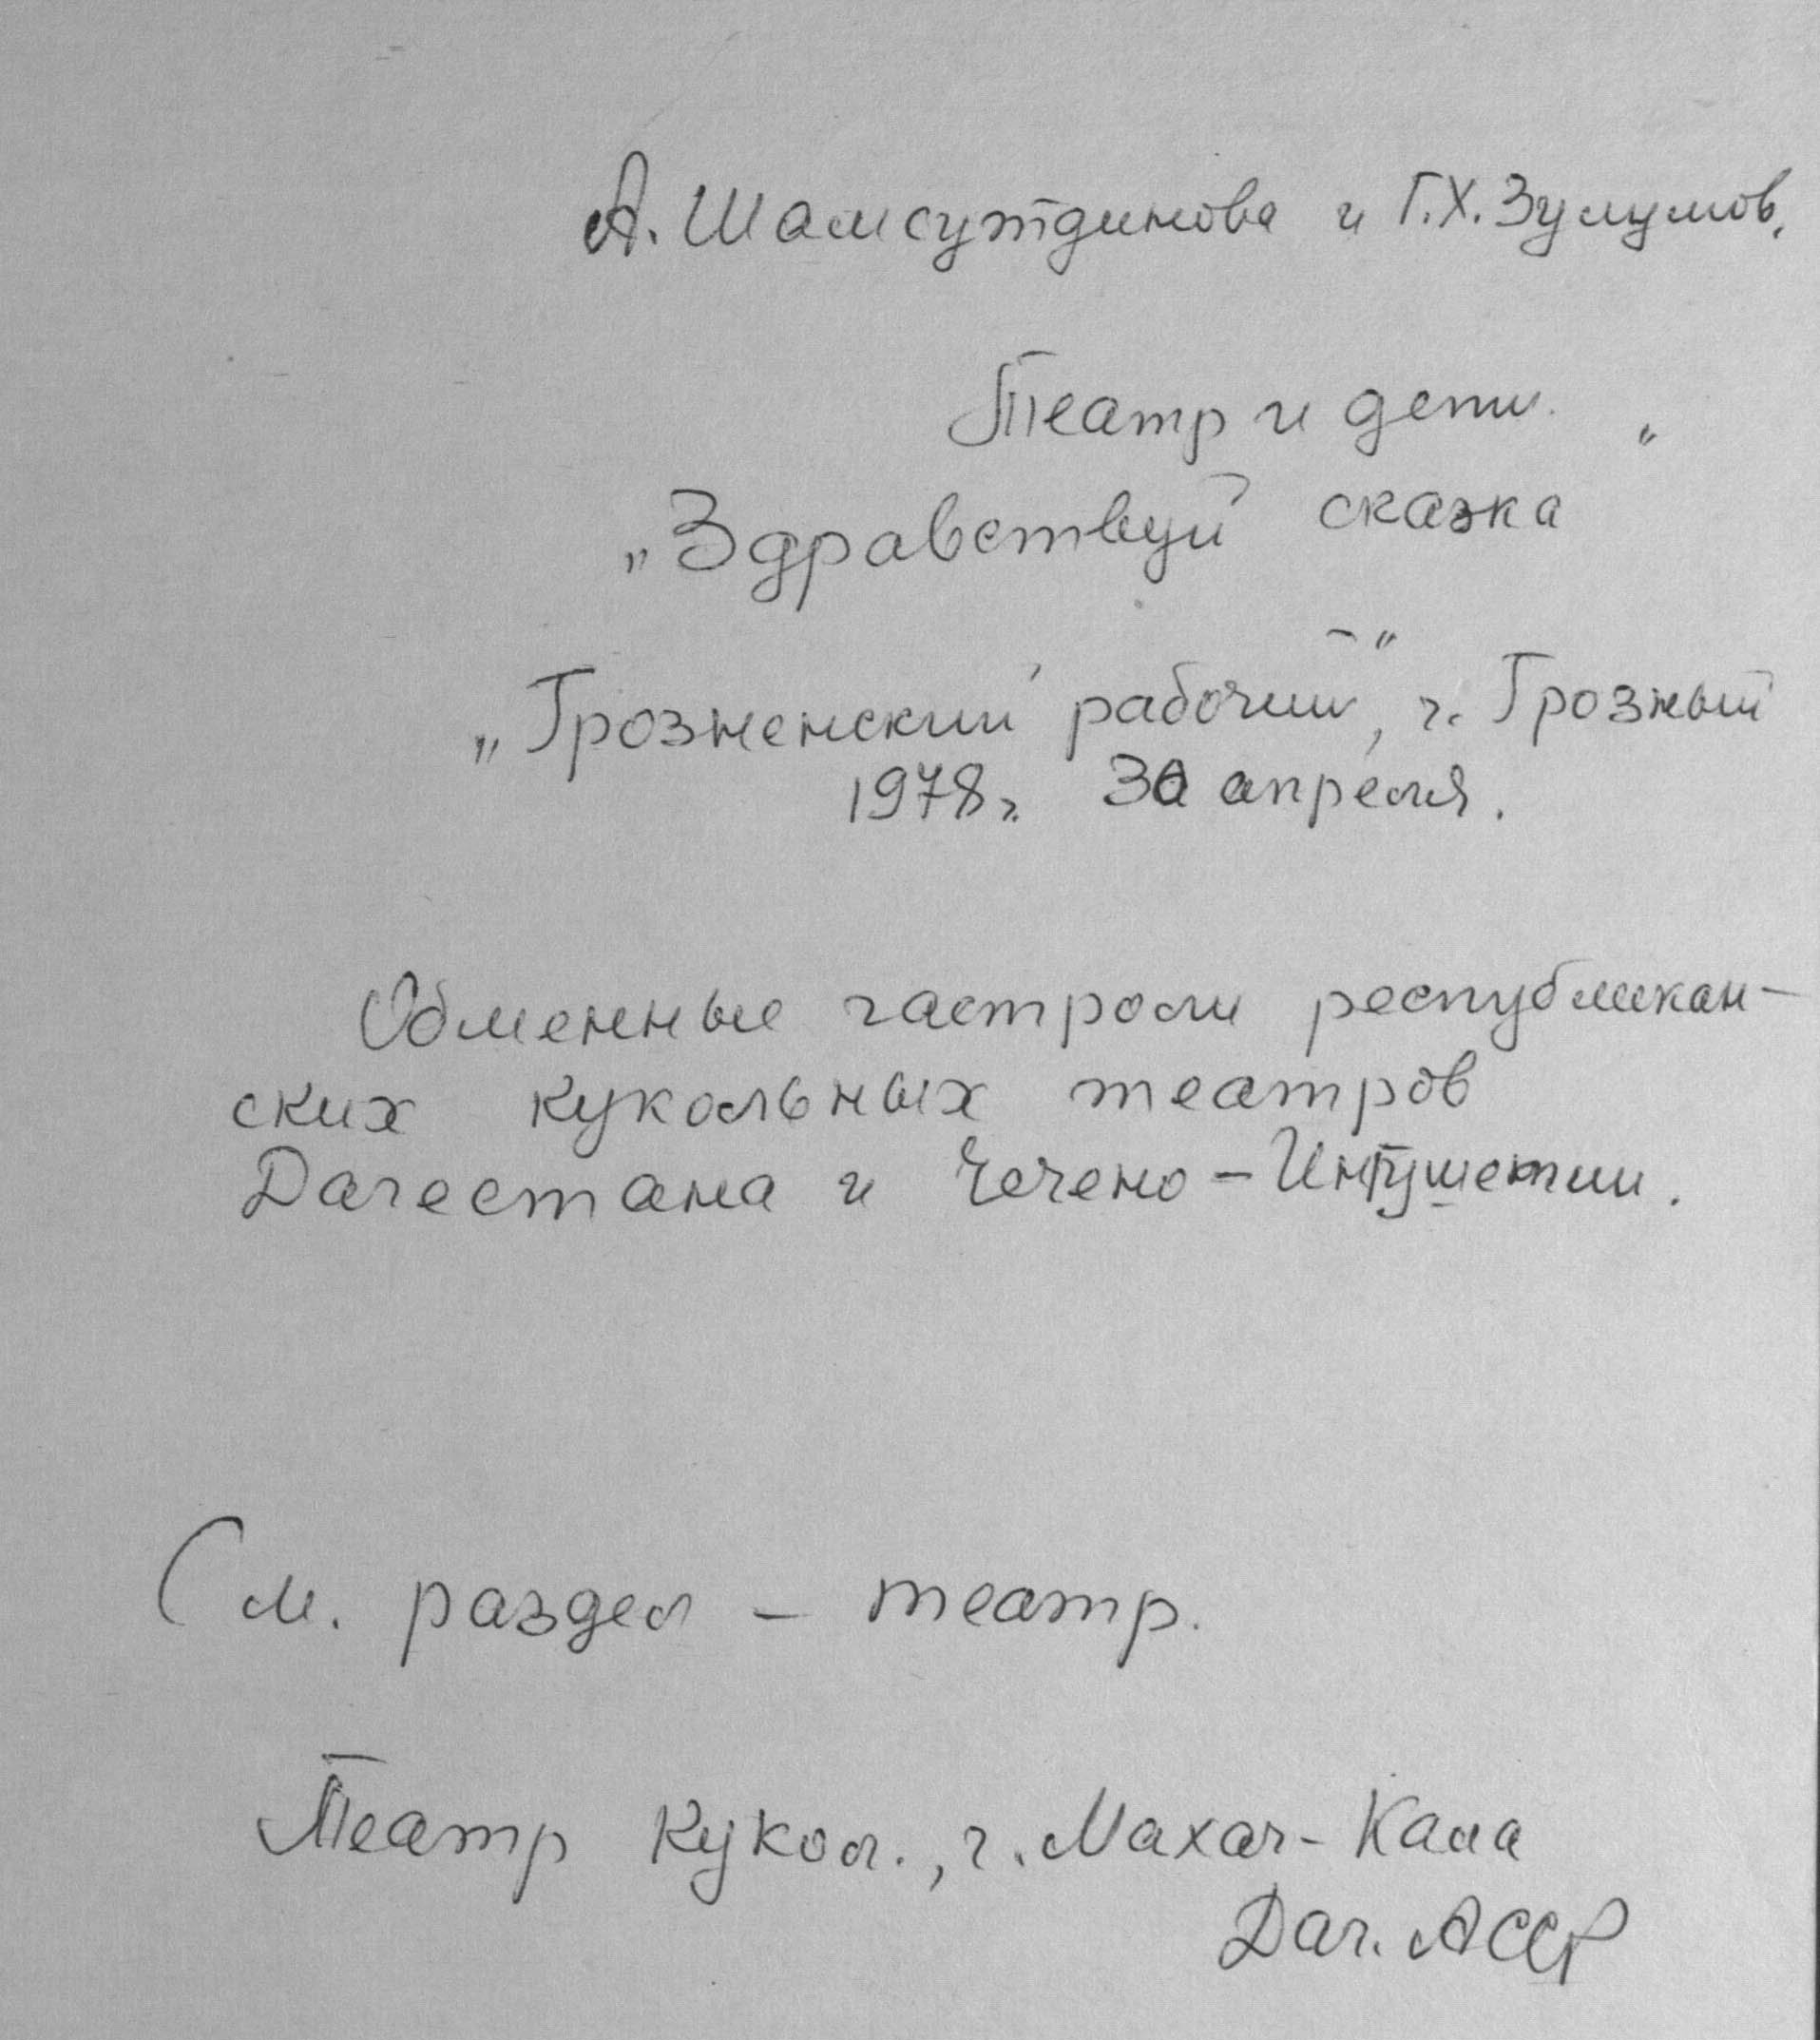 А. Шамсутдинова и Г.Х. Зулумов.
Театр и дети.
„Здравствуй сказка"
„Грозненский рабочий", г. Грозный
1978г. 30 апреля.
Обменные гастроли республикан-
ских кукольных театров
Дагестана и Чечено-Ингушетии.
См. раздел - театр.
Театр кукол., г. Махач-Кала
Даг. АССР